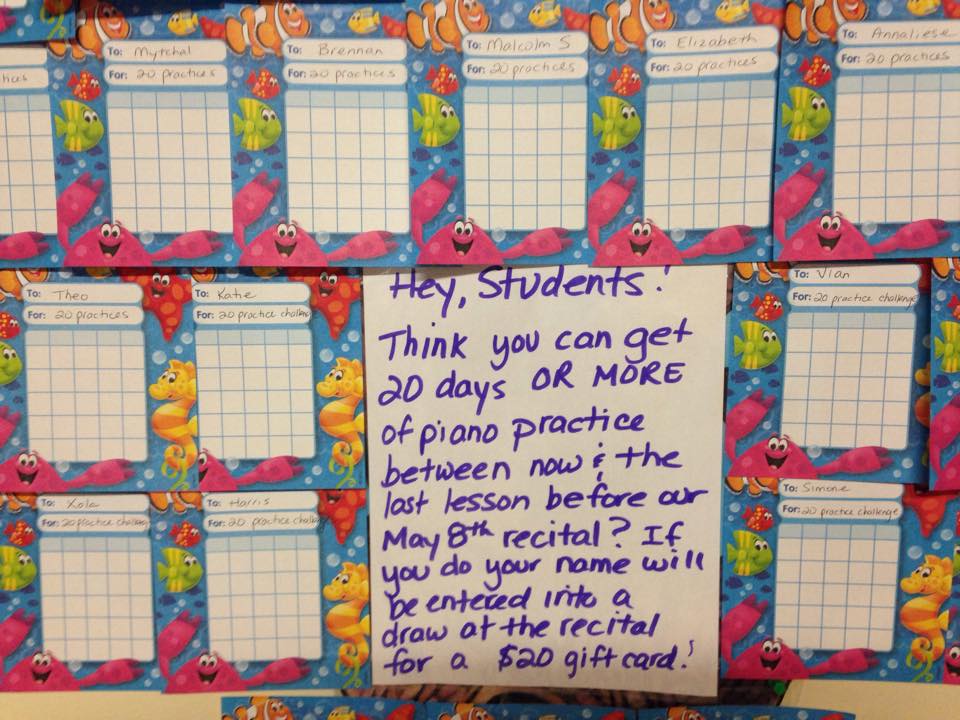 To: Mytchal
For: 20 practices
To: Brennan
For: 20 practices
To: Malcolm S
For: 20 practices
To: Elizabeth
For: 20 practices
To: Annaliese
For: 20 practices
To: Theo
For: 20 practices
To: Katie
For: 20 practice challenge
Hey, Students!
Think you can get
20 days OR MORE
of piano practice
between now & the
last lesson before our
May 8th recital? If
you do your name will
be entered into a
draw at the recital
for a $20 gift card!
To: Vian
For: 20 practice challenge
To: Xola
For: 20 practice challenge
To: Harris
For: 20 practice challenge
To: Simone
For: 20 practice challenge